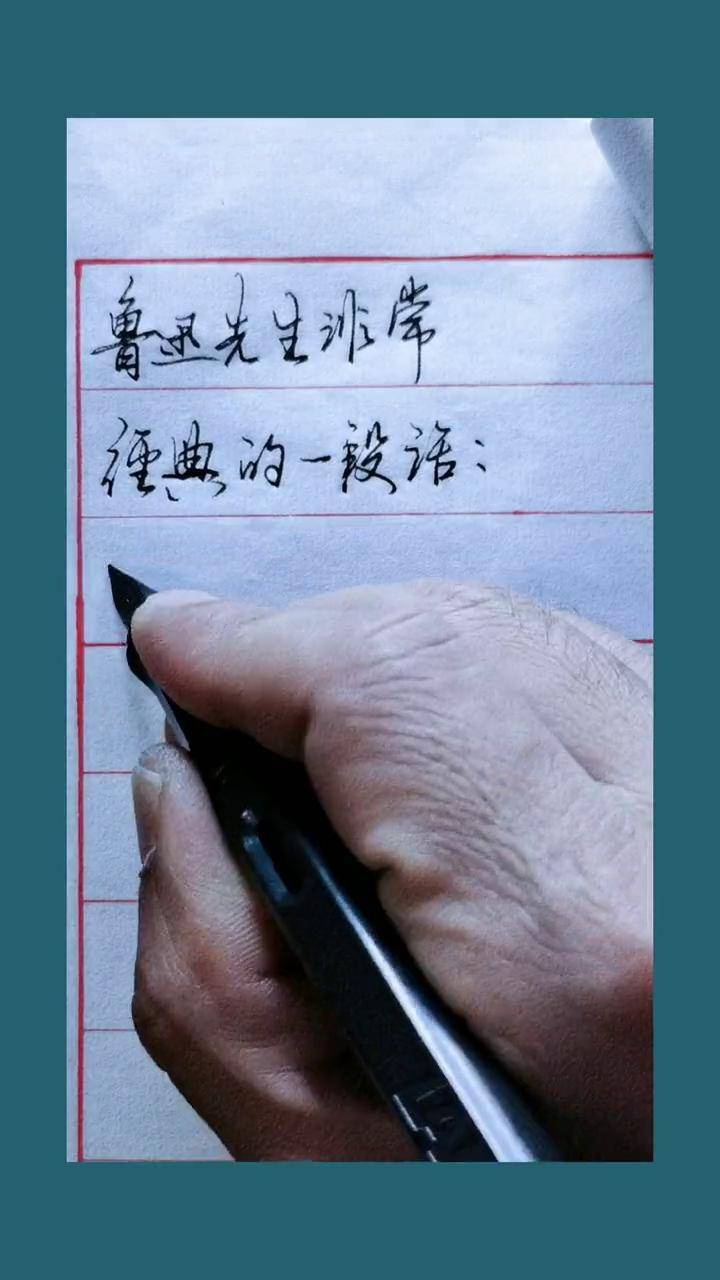 魯迅先生非常
經典的一段话：